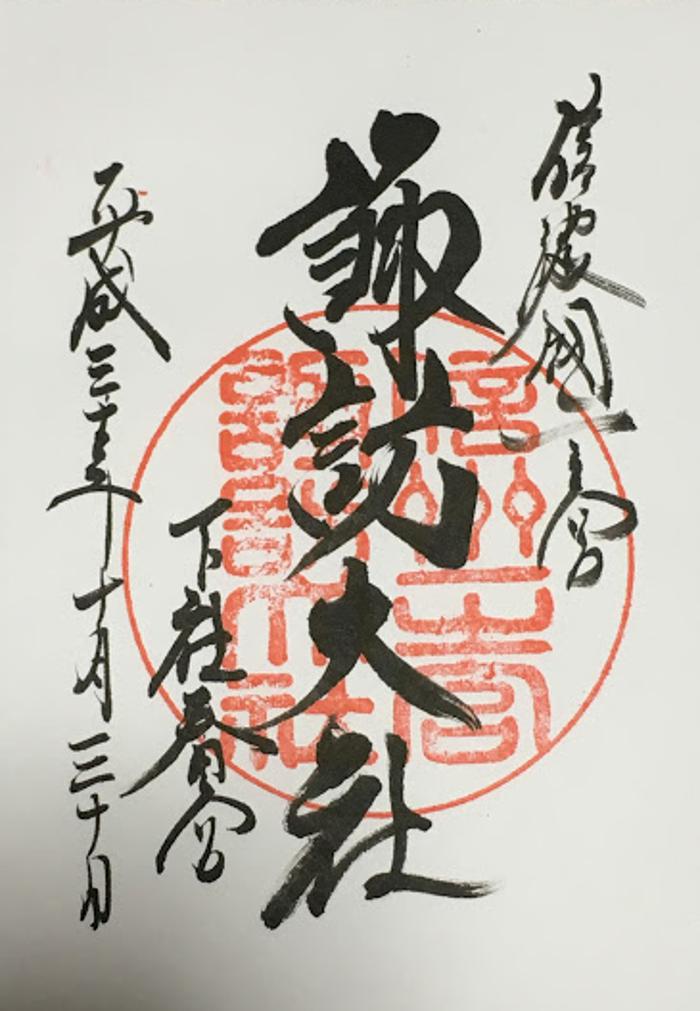 信濃國一宮
諏訪大社
下社春宮
平成三十年十月三十日
信州一宮
諏訪大社